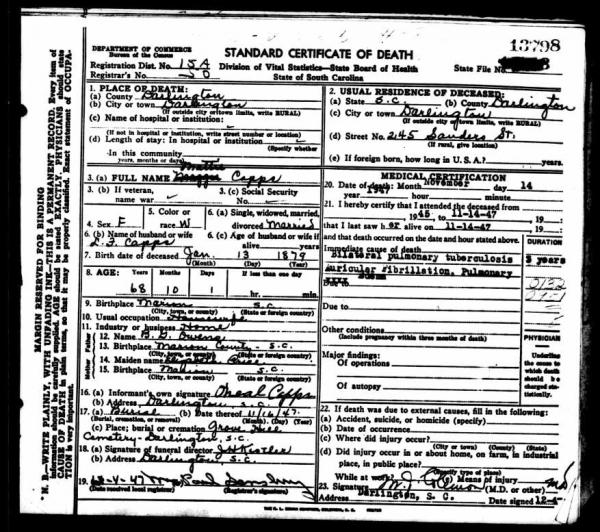 13798
DEPARTMENT OF COMMERCE
Bureau of the Census
STANDARD CERTIFICATE OF DEATH
Registration Dist. No. 15A
Division of Vital Statistics—State Board of Health
State File No.
Registrar's No. 50
State of South Carolina
1. PLACE OF DEATH:
(a) County Darlington
(b) City or town Darlington
(If outside city or town limits, write RURAL)
(c) Name of hospital or institution:
(If not in hospital or institution, write street number or location)
(d) Length of stay: In hospital or institution
In this community
years, months or days)
2. USUAL RESIDENCE OF DECEASED:
(a) State S.C. (b) County Darlington
(c) City or town Darlington
(If outside city or town limits, write RURAL)
(d) Street No. 245 Sanders St.
(If rural, give location)
(e) If foreign born, how long in U. S. A.? years.
3. (a) FULL NAME Mattie Capps
3. (b) If veteran,
name war
3. (c) Social Security
No.
4. Sex F
5. Color or
race W
6. (a) Single, widowed, married,
divorced Married
6. (b) Name of husband or wife
L. F. Capps
6. (c) Age of husband or wife if
alive years
7. Birth date of deceased Jan. 13 1879
(Month) (Day) (Year)
8. AGE: Years Months Days If less than one day
68 10 1 hr. min.
9. Birthplace Marion S.C.
(City, town, or county) (State or foreign country)
10. Usual occupation Housewife
11. Industry or business Home
Father
12. Name B. G. Owens
13. Birthplace Marion County - S.C.
(City, town, or county) (State or foreign country)
Mother
14. Maiden name Elizabeth Price
15. Birthplace Marion S.C.
(City, town, or county) (State or foreign country)
16. (a) Informant's own signature Oneal Capps
(b) Address Darlington, S.C.
17. (a) Burial (b) Date thereof 11/16/47
(Burial, cremation, or removal) (Month) (Day) (Year)
(c) Place; burial or cremation Grove Hill
Cemetery - Darlington, S.C.
18. (a) Signature of funeral director J H Kistler
(b) Address Darlington, S.C.
19. Mrs Paul
(Date received local registrar) (Registrar's signature)
MEDICAL CERTIFICATION
20. Date of death: Month November day 14
year 1947 hour minute
21. I hereby certify that I attended the deceased from
1945 11-14-47 , 19 ;
that I last saw her alive on 11-14-47 , 19 ;
and that death occurred on the date and hour stated above.
DURATION
Immediate cause of death
Bilateral pulmonary tuberculosis 3 years
Auricular fibrillation, Pulmonary
Due to
Due to
Other conditions
(Include pregnancy within three months of death)
PHYSICIAN
Major findings:
Of operations
Of autopsy
Underline
the cause
to which
death
should be
charged sta-
tistically.
22. If death was due to external causes, fill in the following:
(a) Accident, suicide, or homicide (specify)
(b) Date of occurrence
(c) Where did injury occur?
(City or town) (County) (State)
(d) Did injury occur in or about home, on farm, in industrial
place, in public place?
(Specify type of place)
While at work? (e) Means of injury
23. Signature (M.D. or other) MD
Darlington, S. C. Date signed
MARGIN RESERVED FOR BINDING
N. B.—WRITE PLAINLY, WITH UNFADING INK—THIS IS A PERMANENT RECORD. Every item of
information should be carefully supplied. AGE should be stated EXACTLY. PHYSICIANS should state
CAUSE OF DEATH in plain terms, so that it may be properly classified. Exact statement of OCCUPA-
TION is very important.